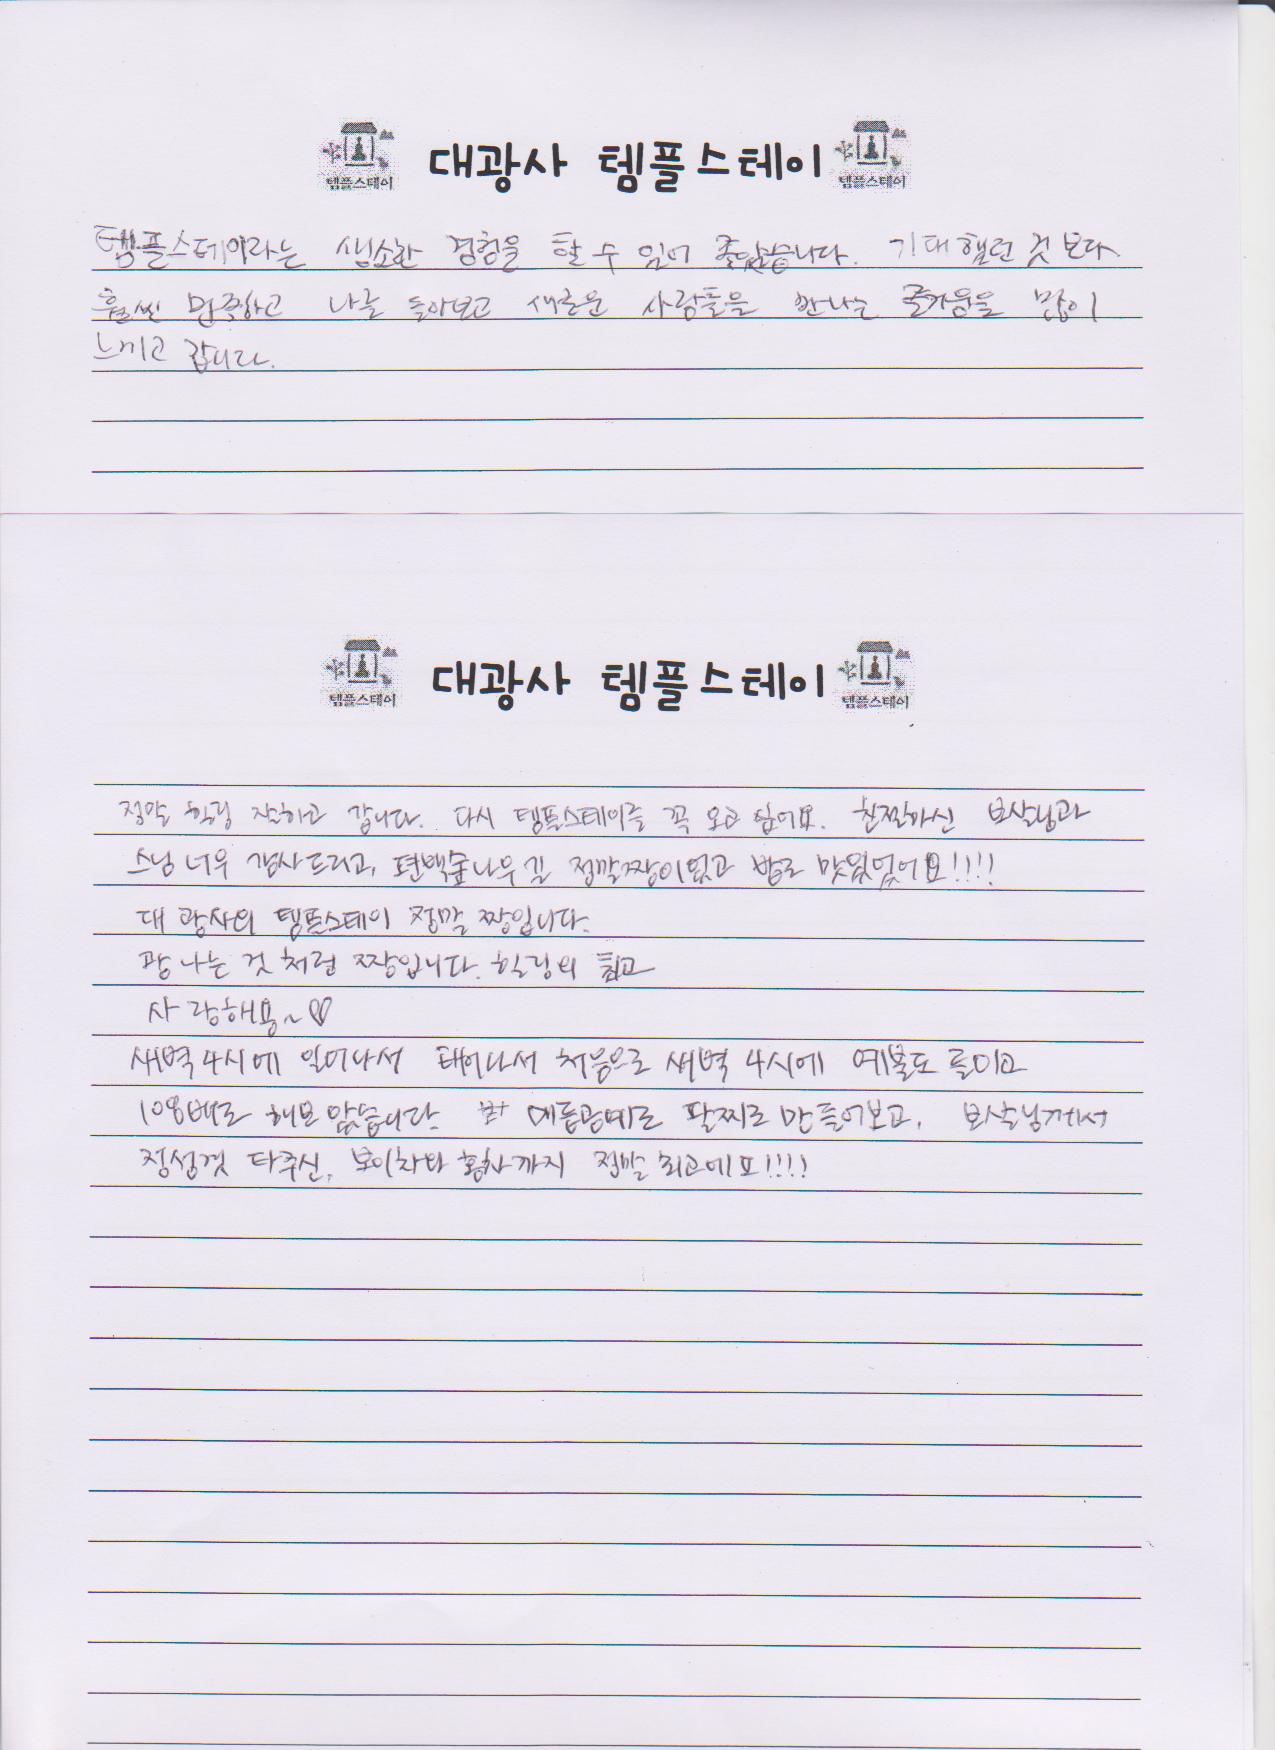 템플스테이 대광사 템플스테이 템플스테이
템플스테이라는 생소한 경험을 할 수 있어 좋았습니다. 기대했던 것 보다
훨씬 만족하고 나를 돌아보고 새로운 사람들을 만나는 즐거움을 많이
느끼고 갑니다.
템플스테이 대광사 템플스테이 템플스테이
정말 힐링 잘하고 갑니다. 다시 템플스테이를 꼭 오고 싶어요. 친절하신 보살님과
스님 너무 감사드리고, 편백숲나무길 정말 짱이었고 밥도 맛있었어요!!!!
대광사의 템플스테이 정말 짱입니다.
광나는 것처럼 짱입니다. 힐링의 최고
사랑해용~♡
새벽 4시에 일어나서 태어나서 처음으로 새벽 4시에 예불도 들이고
108배도 해보았습니다. 또 매듭공예로 팔찌도 만들어보고, 보살님께서
정성껏 타주신, 보이차와 홍차까지 정말 최고에요!!!!